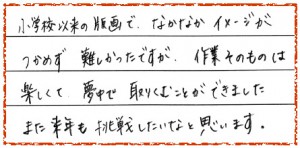 小学校以来の版画で、なかなかイメージが
つかめず 難しかったですが、作業そのものは
楽しくて 夢中で 取りくむことができました
また来年も 挑戦したいなと思います。